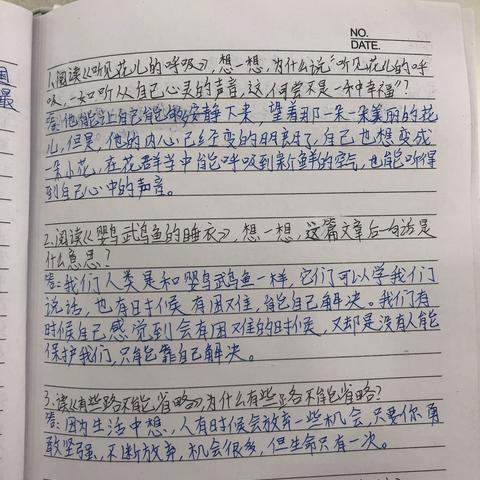 NO.
DATE.
1.阅读《听见花儿的呼吸》,想一想,为什么说“听见花儿的呼
吸,一如听从自己心灵的声音,这何尝不是一种幸福”?
答:他能让自己能够安静下来,望着那一朵一朵美丽的花
儿,但是,他的内心已经变的明朗了,自己也想变成
一朵小花,在花群当中能呼吸到新鲜的空气,也能听得
到自己心中的声音。
2.阅读《鹦鸟武鸟鱼的睡衣》,想一想,这篇文章后一句话是
什么意思?
答:我们人类是和婴鸟武鸟鱼一样,它们可以学我们
说话,也有时候有困难,能自己解决。我们有
时候自己感觉到会有困难的时候,又却是没有人能
保护我们,只能靠自己解决。
3.读《有些路不能省略》,为什么有些路不能省略?
答:因为生活中想,人有时候会放弃一些机会,只要你勇
敢坚强,不断放弃,机会很多,但生命只有一次。
最